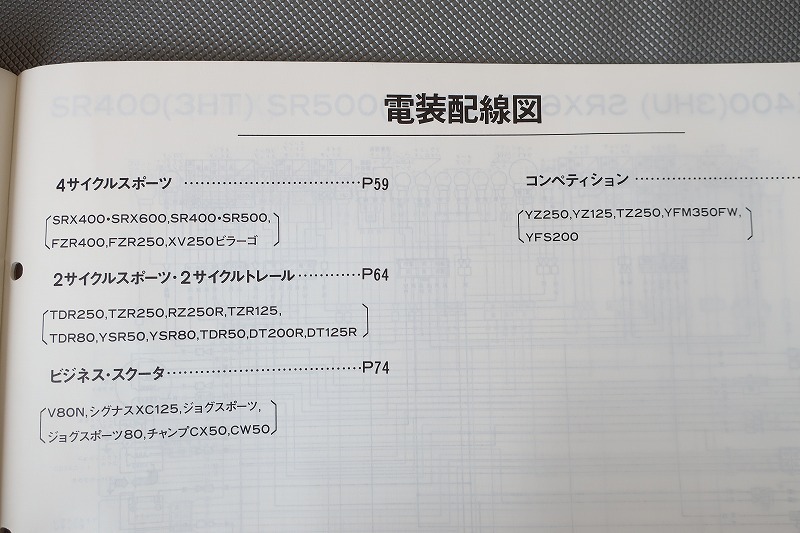 電装配線図
4サイクルスポーツ ……………………………P59
SRX400・SRX600,SR400・SR500,
FZR400,FZR250,XV250ビラーゴ
2サイクルスポーツ・2サイクルトレール…………P64
TDR250,TZR250,RZ250R,TZR125,
TDR80,YSR50,YSR80,TDR50,DT200R,DT125R
ビジネス・スクータ………………………………P74
V80N,シグナスXC125,ジョグスポーツ,
ジョグスポーツ80,チャンプCX50,CW50
コンペティション …………………………
YZ250,YZ125,TZ250,YFM350FW,
YFS200